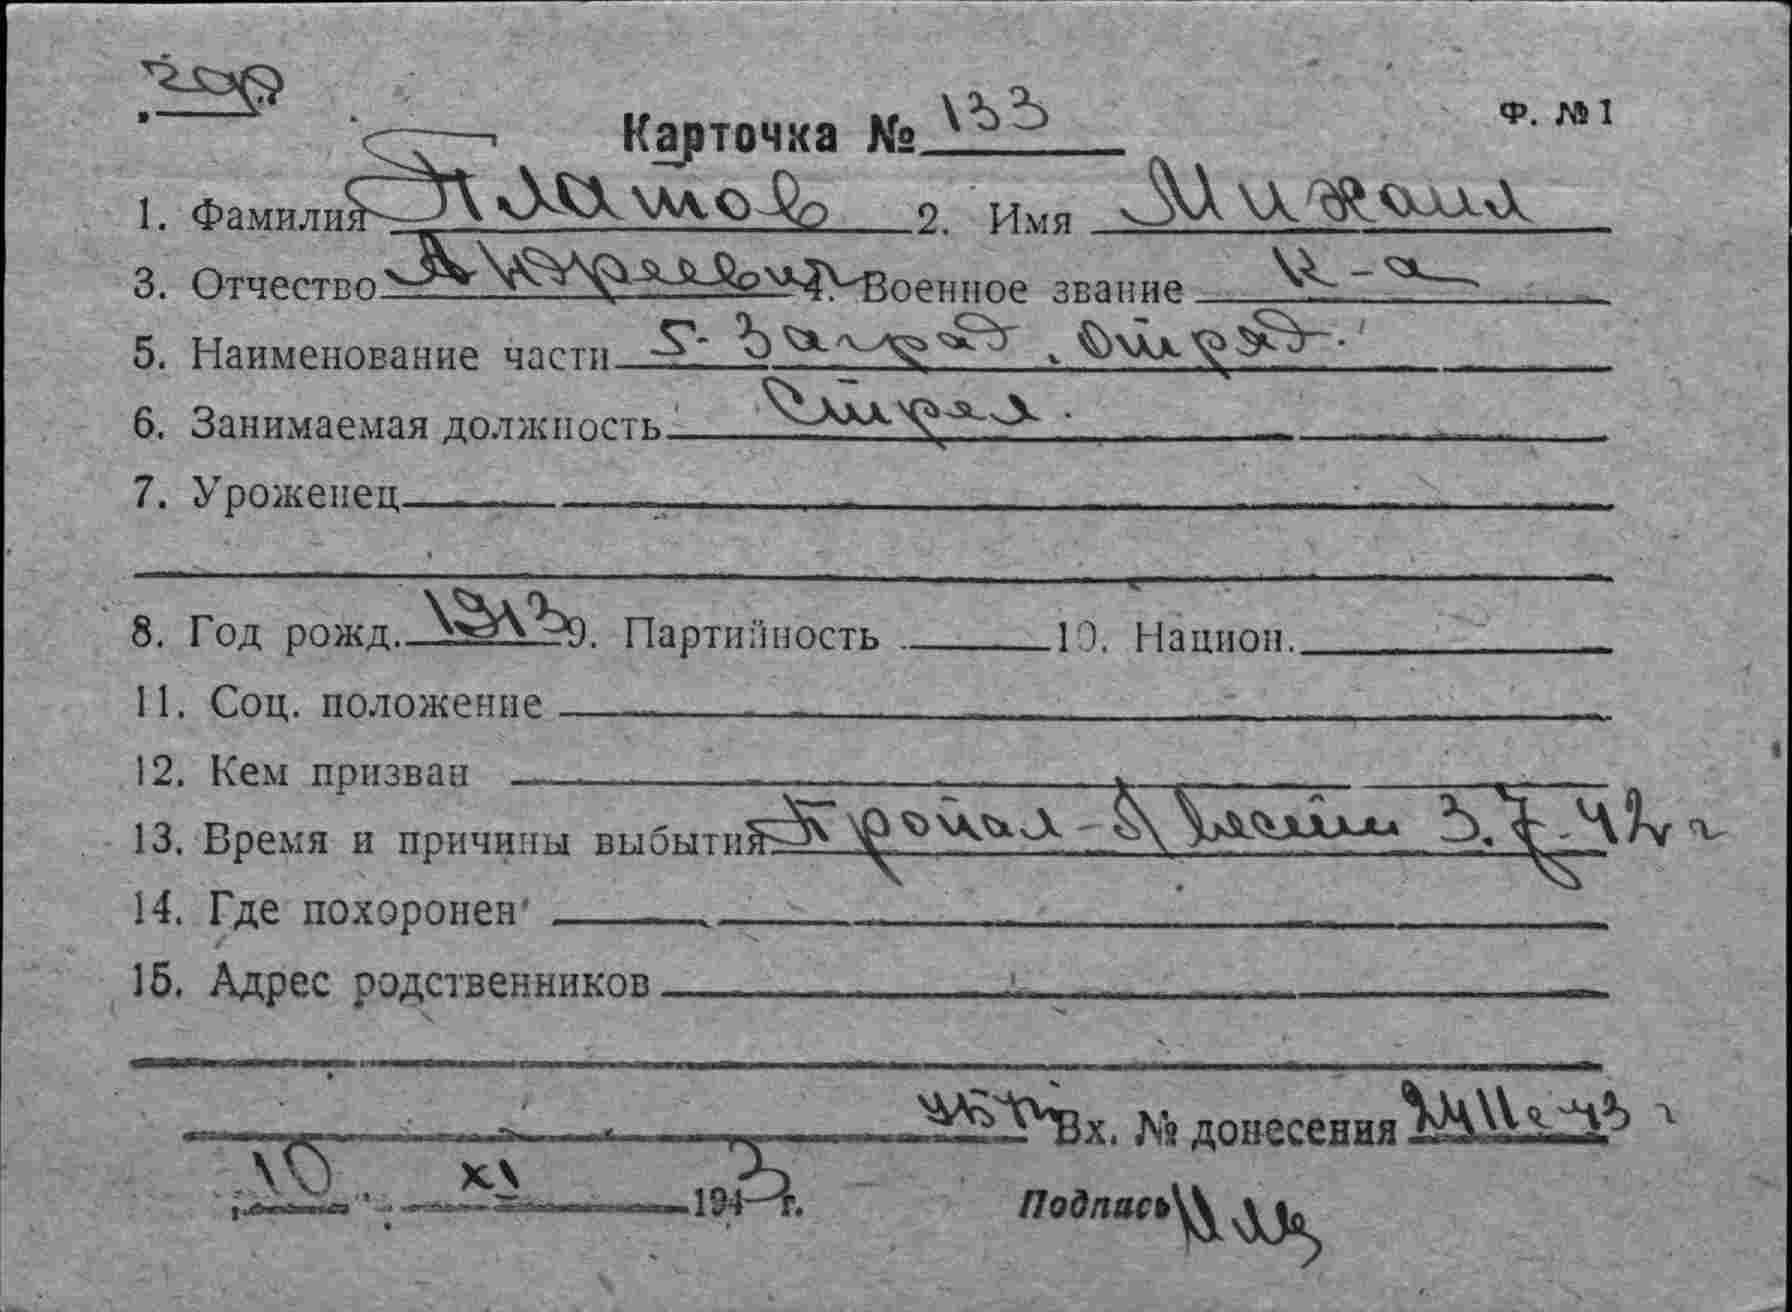 Карточка № 133
Ф. № 1
1. Фамилия Платов 2. Имя Михаил
3. Отчество Андреевич 4. Военное звание к-ц
5. Наименование части 5- Заград. Отряд.
6. Занимаемая должность Стрел.
7. Уроженец
8. Год рожд. 1913 9. Партийность 10. Национ.
11. Соц. положение
12. Кем призван
13. Время и причины выбытия Пропал - б/вести 3. 42 г
14. Где похоронен
15. Адрес родственников
Вх. № донесения
10 XI 1943 г. Подпись